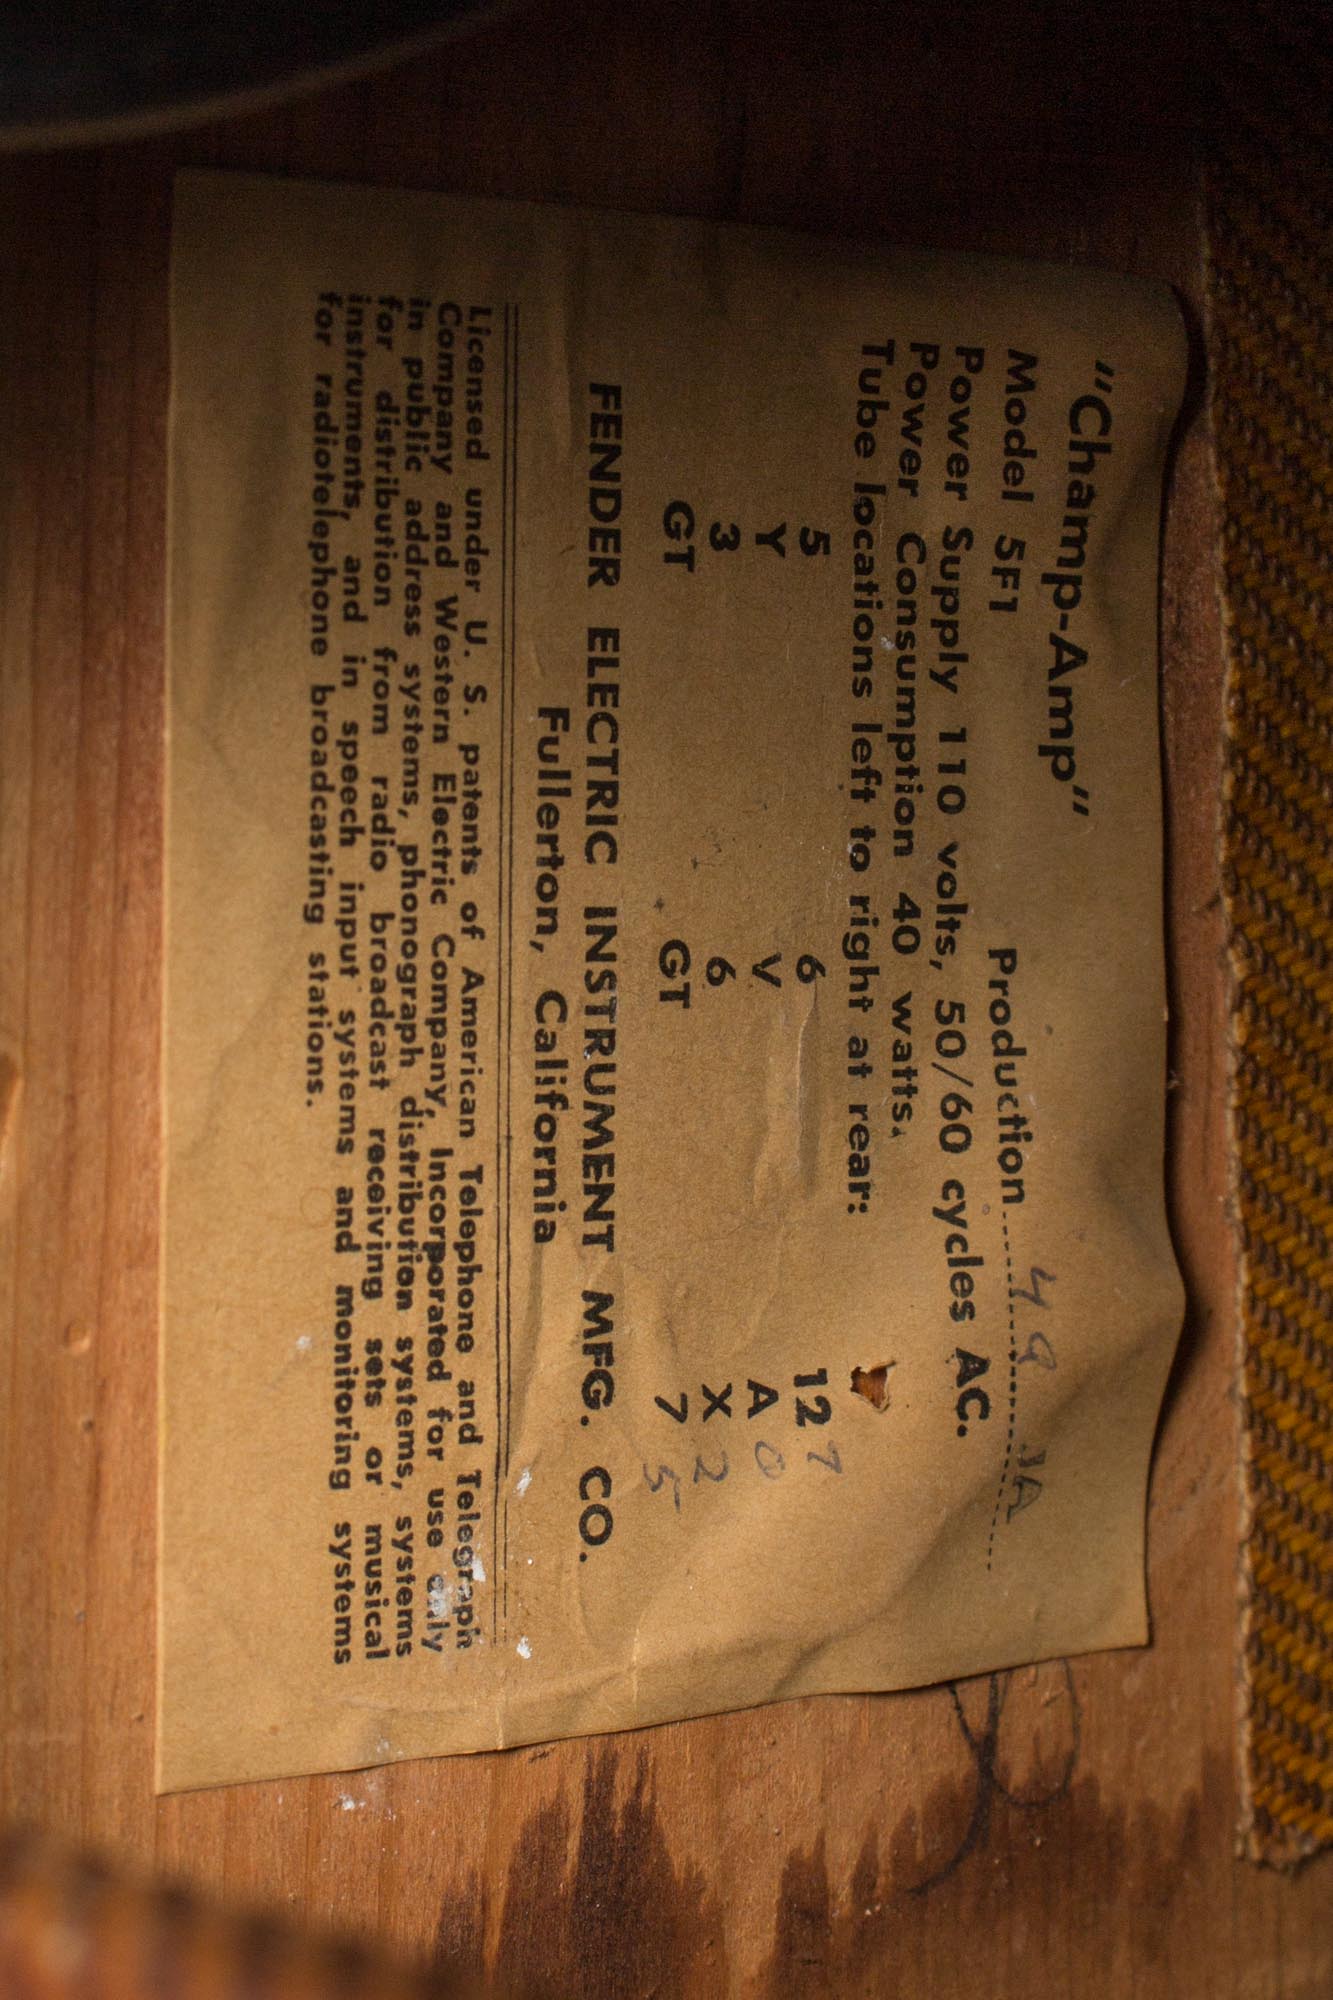 "Champ-Amp"
Model 5F1 Production
Power Supply 110 volts, 50/60 cycles AC.
Power Consumption 40 watts.
Tube locations left to right at rear:
5 6 12 7
Y V A 0
3 6 X 2
GT GT 7 5
FENDER ELECTRIC INSTRUMENT MFG. CO.
Fullerton, California
Licensed under U. S. patents of American Telephone and Telegraph
Company and Western Electric Company, Incorporated for use only
in public address systems, phonograph distribution systems, systems
for distribution from radio broadcast receiving sets or musical
instruments, and in speech input systems and monitoring systems
for radiotelephone broadcasting stations.